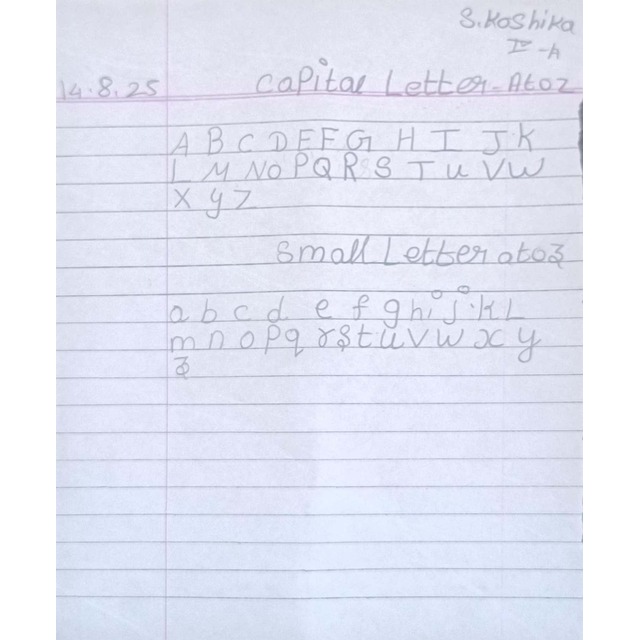 S. Koshika
IV-A
14.8.25
Capital Letter-A to Z
A B C D E F G H I J K
L M N O P Q R S T U V W
X Y Z
Small Letter a to z
a b c d e f g h i j k L
m n o p q r s t u v w x y
z